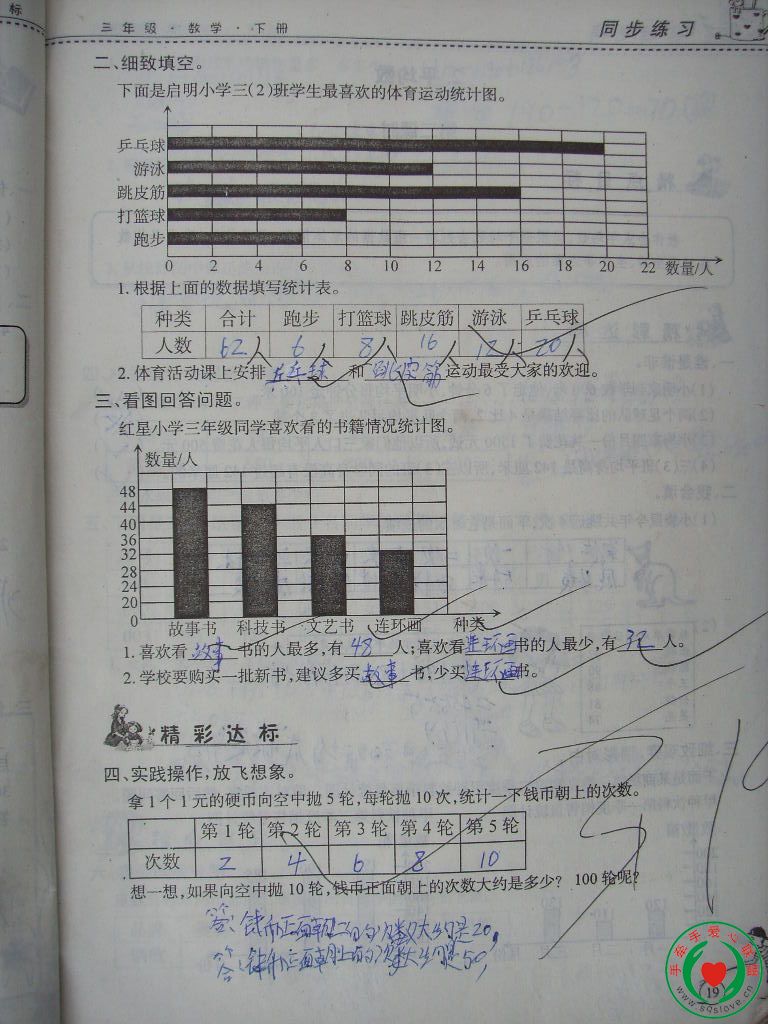 标
三年级·数学·下册 同步练习
二、细致填空。
下面是启明小学三(2)班学生最喜欢的体育运动统计图。
乒乓球
游泳
跳皮筋
打篮球
跑步
0 2 4 6 8 10 12 14 16 18 20 22 数量/人
1. 根据上面的数据填写统计表。
种类 合计 跑步 打篮球 跳皮筋 游泳 乒乓球
人数 62人 6人 8人 16人 12人 20人
2. 体育活动课上安排 乒乓球 和 跳皮筋 运动最受大家的欢迎。
三、看图回答问题。
红星小学三年级同学喜欢看的书籍情况统计图。
数量/人
48
44
40
36
32
28
24
20
0
故事书 科技书 文艺书 连环画 种类
1. 喜欢看 故事 书的人最多,有 48 人;喜欢看 连环画 书的人最少,有 32 人。
2. 学校要购买一批新书,建议多买 故事 书,少买 连环画 书。
精彩达标
四、实践操作,放飞想象。
拿1个1元的硬币向空中抛5轮,每轮抛10次,统计一下钱币朝上的次数。
第1轮 第2轮 第3轮 第4轮 第5轮
次数 2 4 6 8 10
想一想,如果向空中抛10轮,钱币正面朝上的次数大约是多少? 100轮呢?
答:钱币正面朝上的次数大约是20,
答:钱币正面朝上的次数大约是50,
手牵手爱心联盟
www.sqslove.cn
19